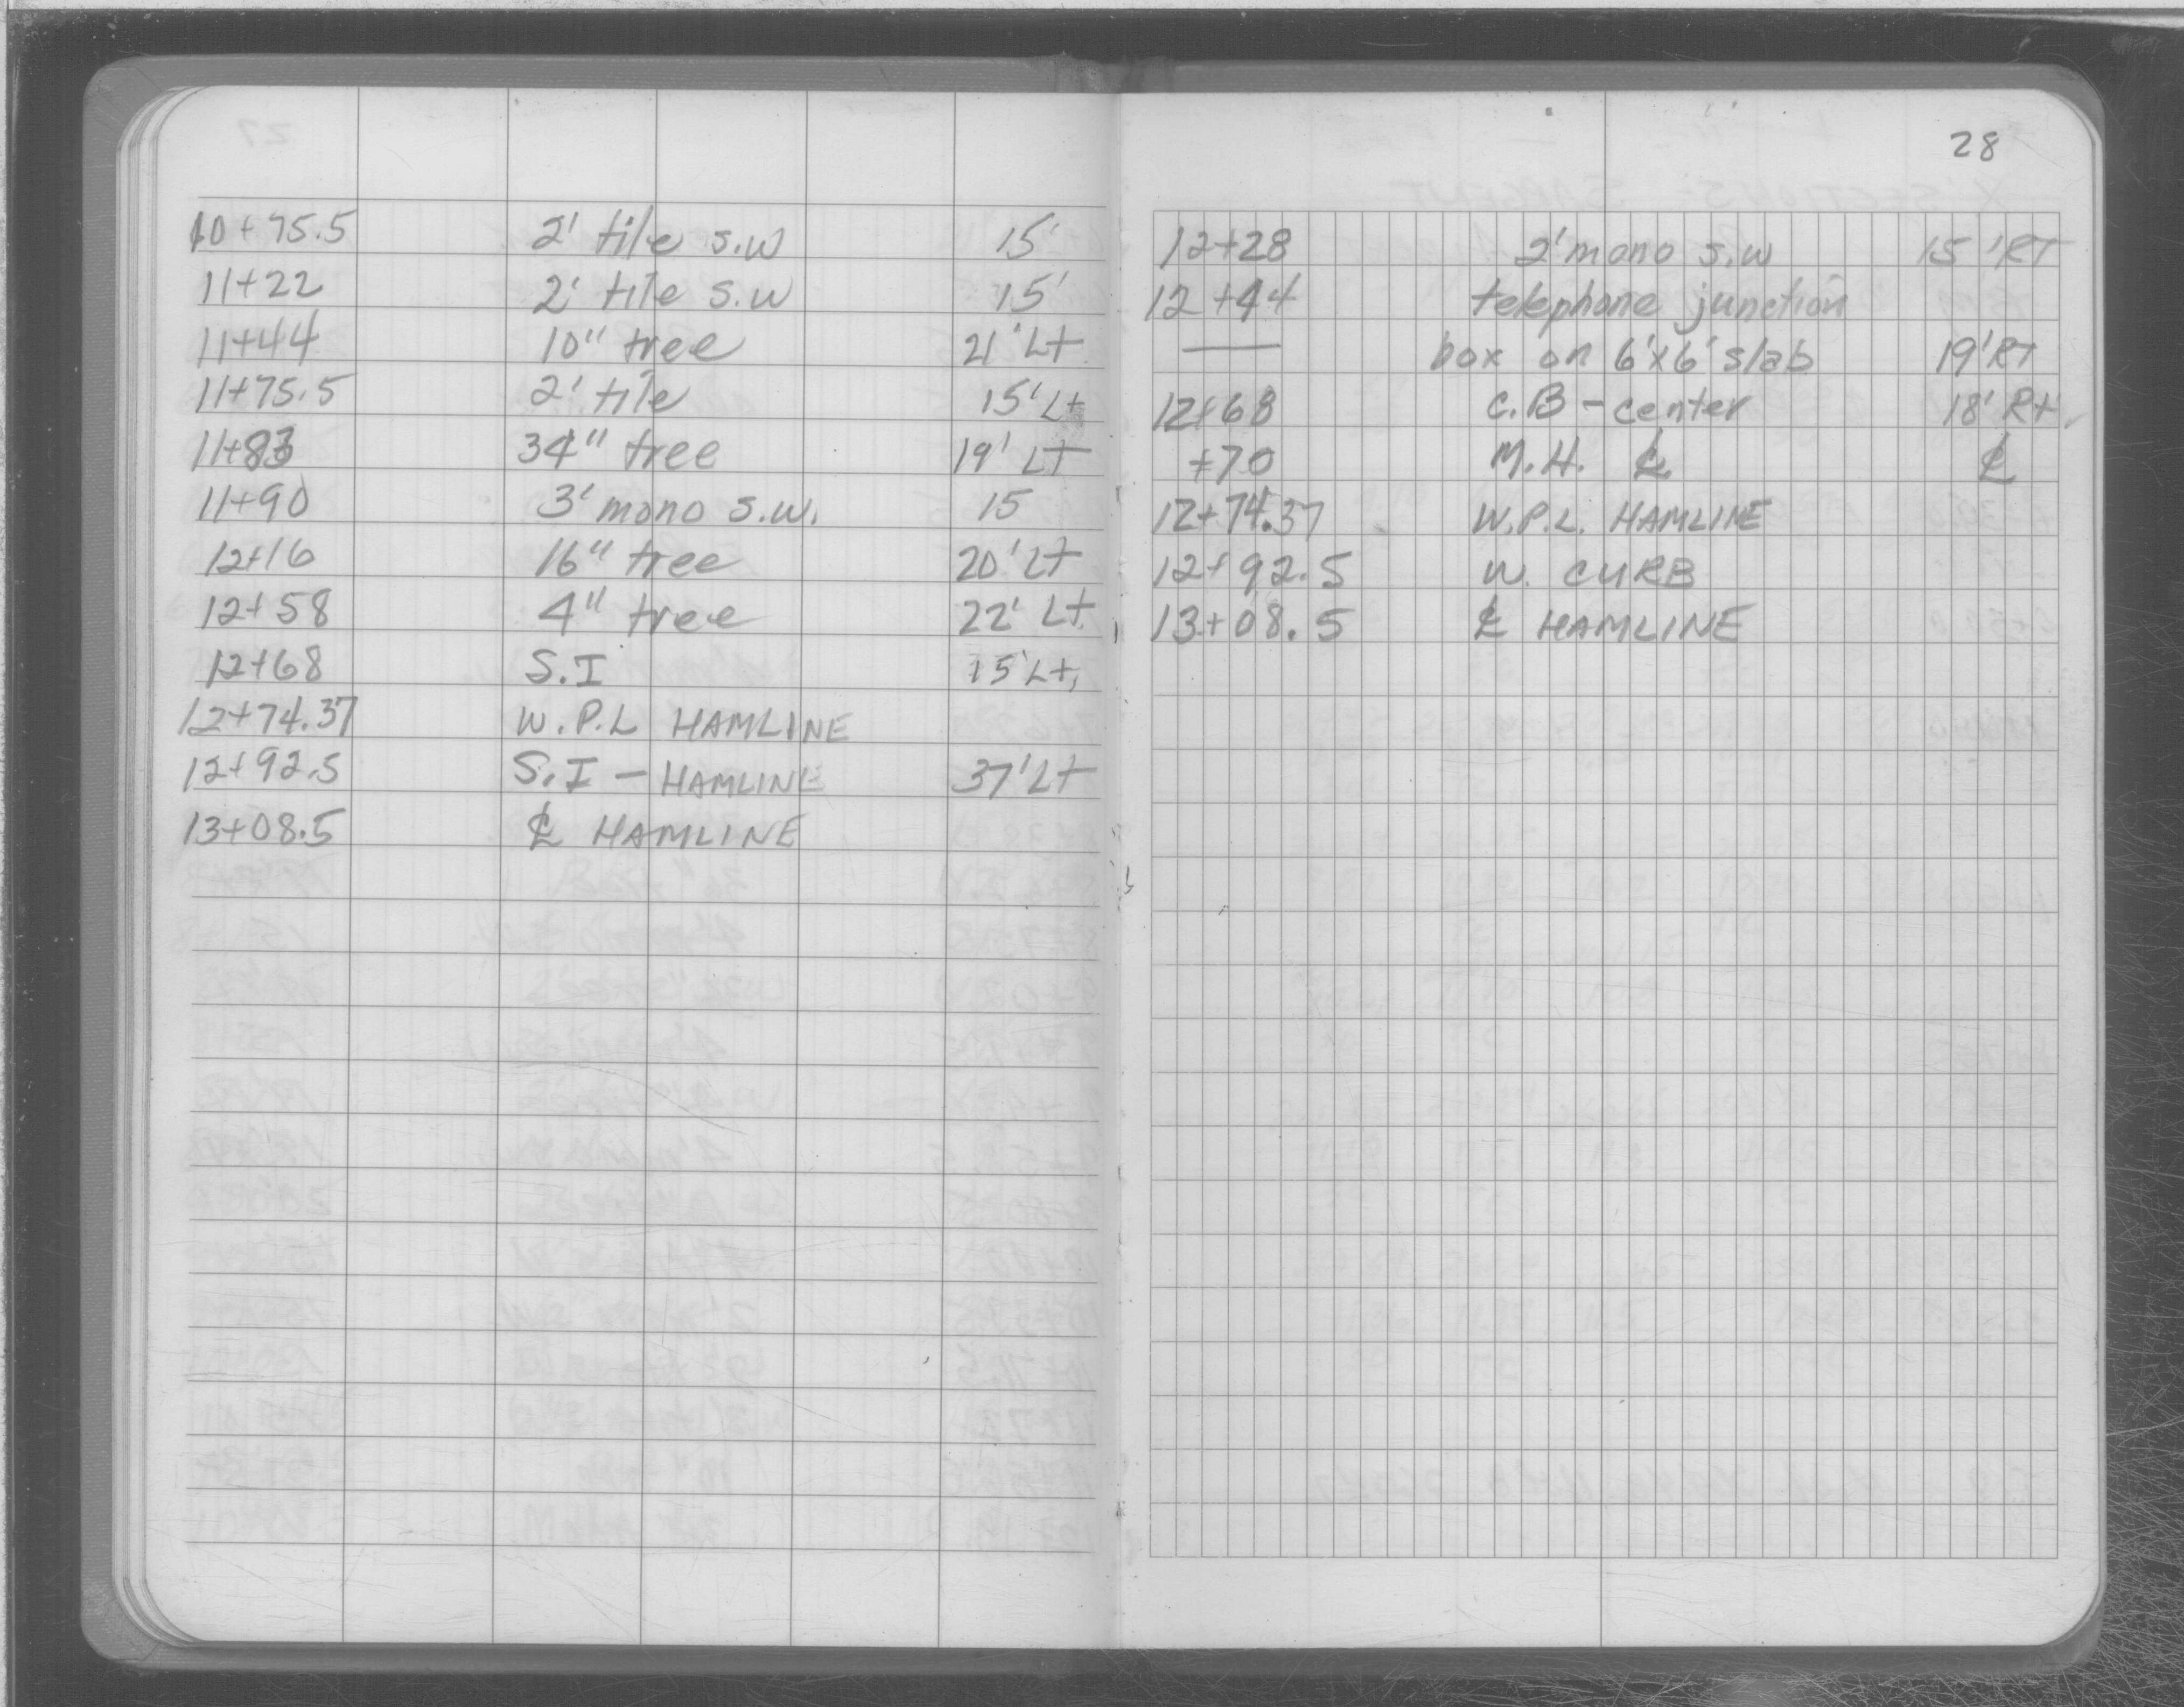 10+75.5 2' tile s.w 15'
11+22 2' tile s.w 15'
11+44 10" tree 21' Lt
11+75.5 2' tile 15' Lt
11+83 34" tree 19' Lt
11+90 3' mono s.w. 15
12+16 16" tree 20' Lt
12+58 4" tree 22' Lt.
12+68 S.I 15' Lt.
12+74.37 W.P.L HAMLINE
12+92.5 S.I - HAMLINE 37' Lt
13+08.5 ℄ HAMLINE
28
12+28 2' mono s.w 15' RT
12+44 telephone junction
— box on 6'x6' slab 19' RT
12+68 C.B - center 18' Rt.
+70 M.H. ℄ ℄
12+74.37 W.P.L. HAMLINE
12+92.5 W. CURB
13+08.5 ℄ HAMLINE